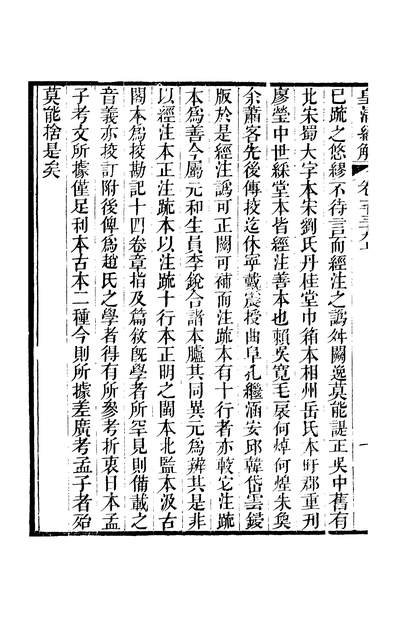 皇清經解 卷一千三十九
巳疏之悠繆不待言而經注之譌舛闕逸莫能諟正吳中舊有
北宋蜀大字本宋劉氏丹桂堂巾箱本相州岳氏本盱郡重刊
廖瑩中世綵堂本皆經注善本也賴吳寬毛扆何焯何煌朱奐
余蕭客先後傳挍迄休寧戴震授曲阜孔繼涵安邱韓岱雲鋟
版於是經注譌可正闕可補而注疏本有十行者亦較它注疏
本爲善今屬元和生員李銳合諸本臚其同異元爲辨其是非
以經注本正注疏本以注疏十行本正明之閩本北監本汲古
閣本爲挍勘記十四卷章指及篇敘旣學者所罕見則備載之
音義亦挍訂附後俾爲趙氏之學者得有所參考折衷日本孟
子考文所據僅足利本古本二種今則所據差廣考孟子者殆
莫能捨是矣